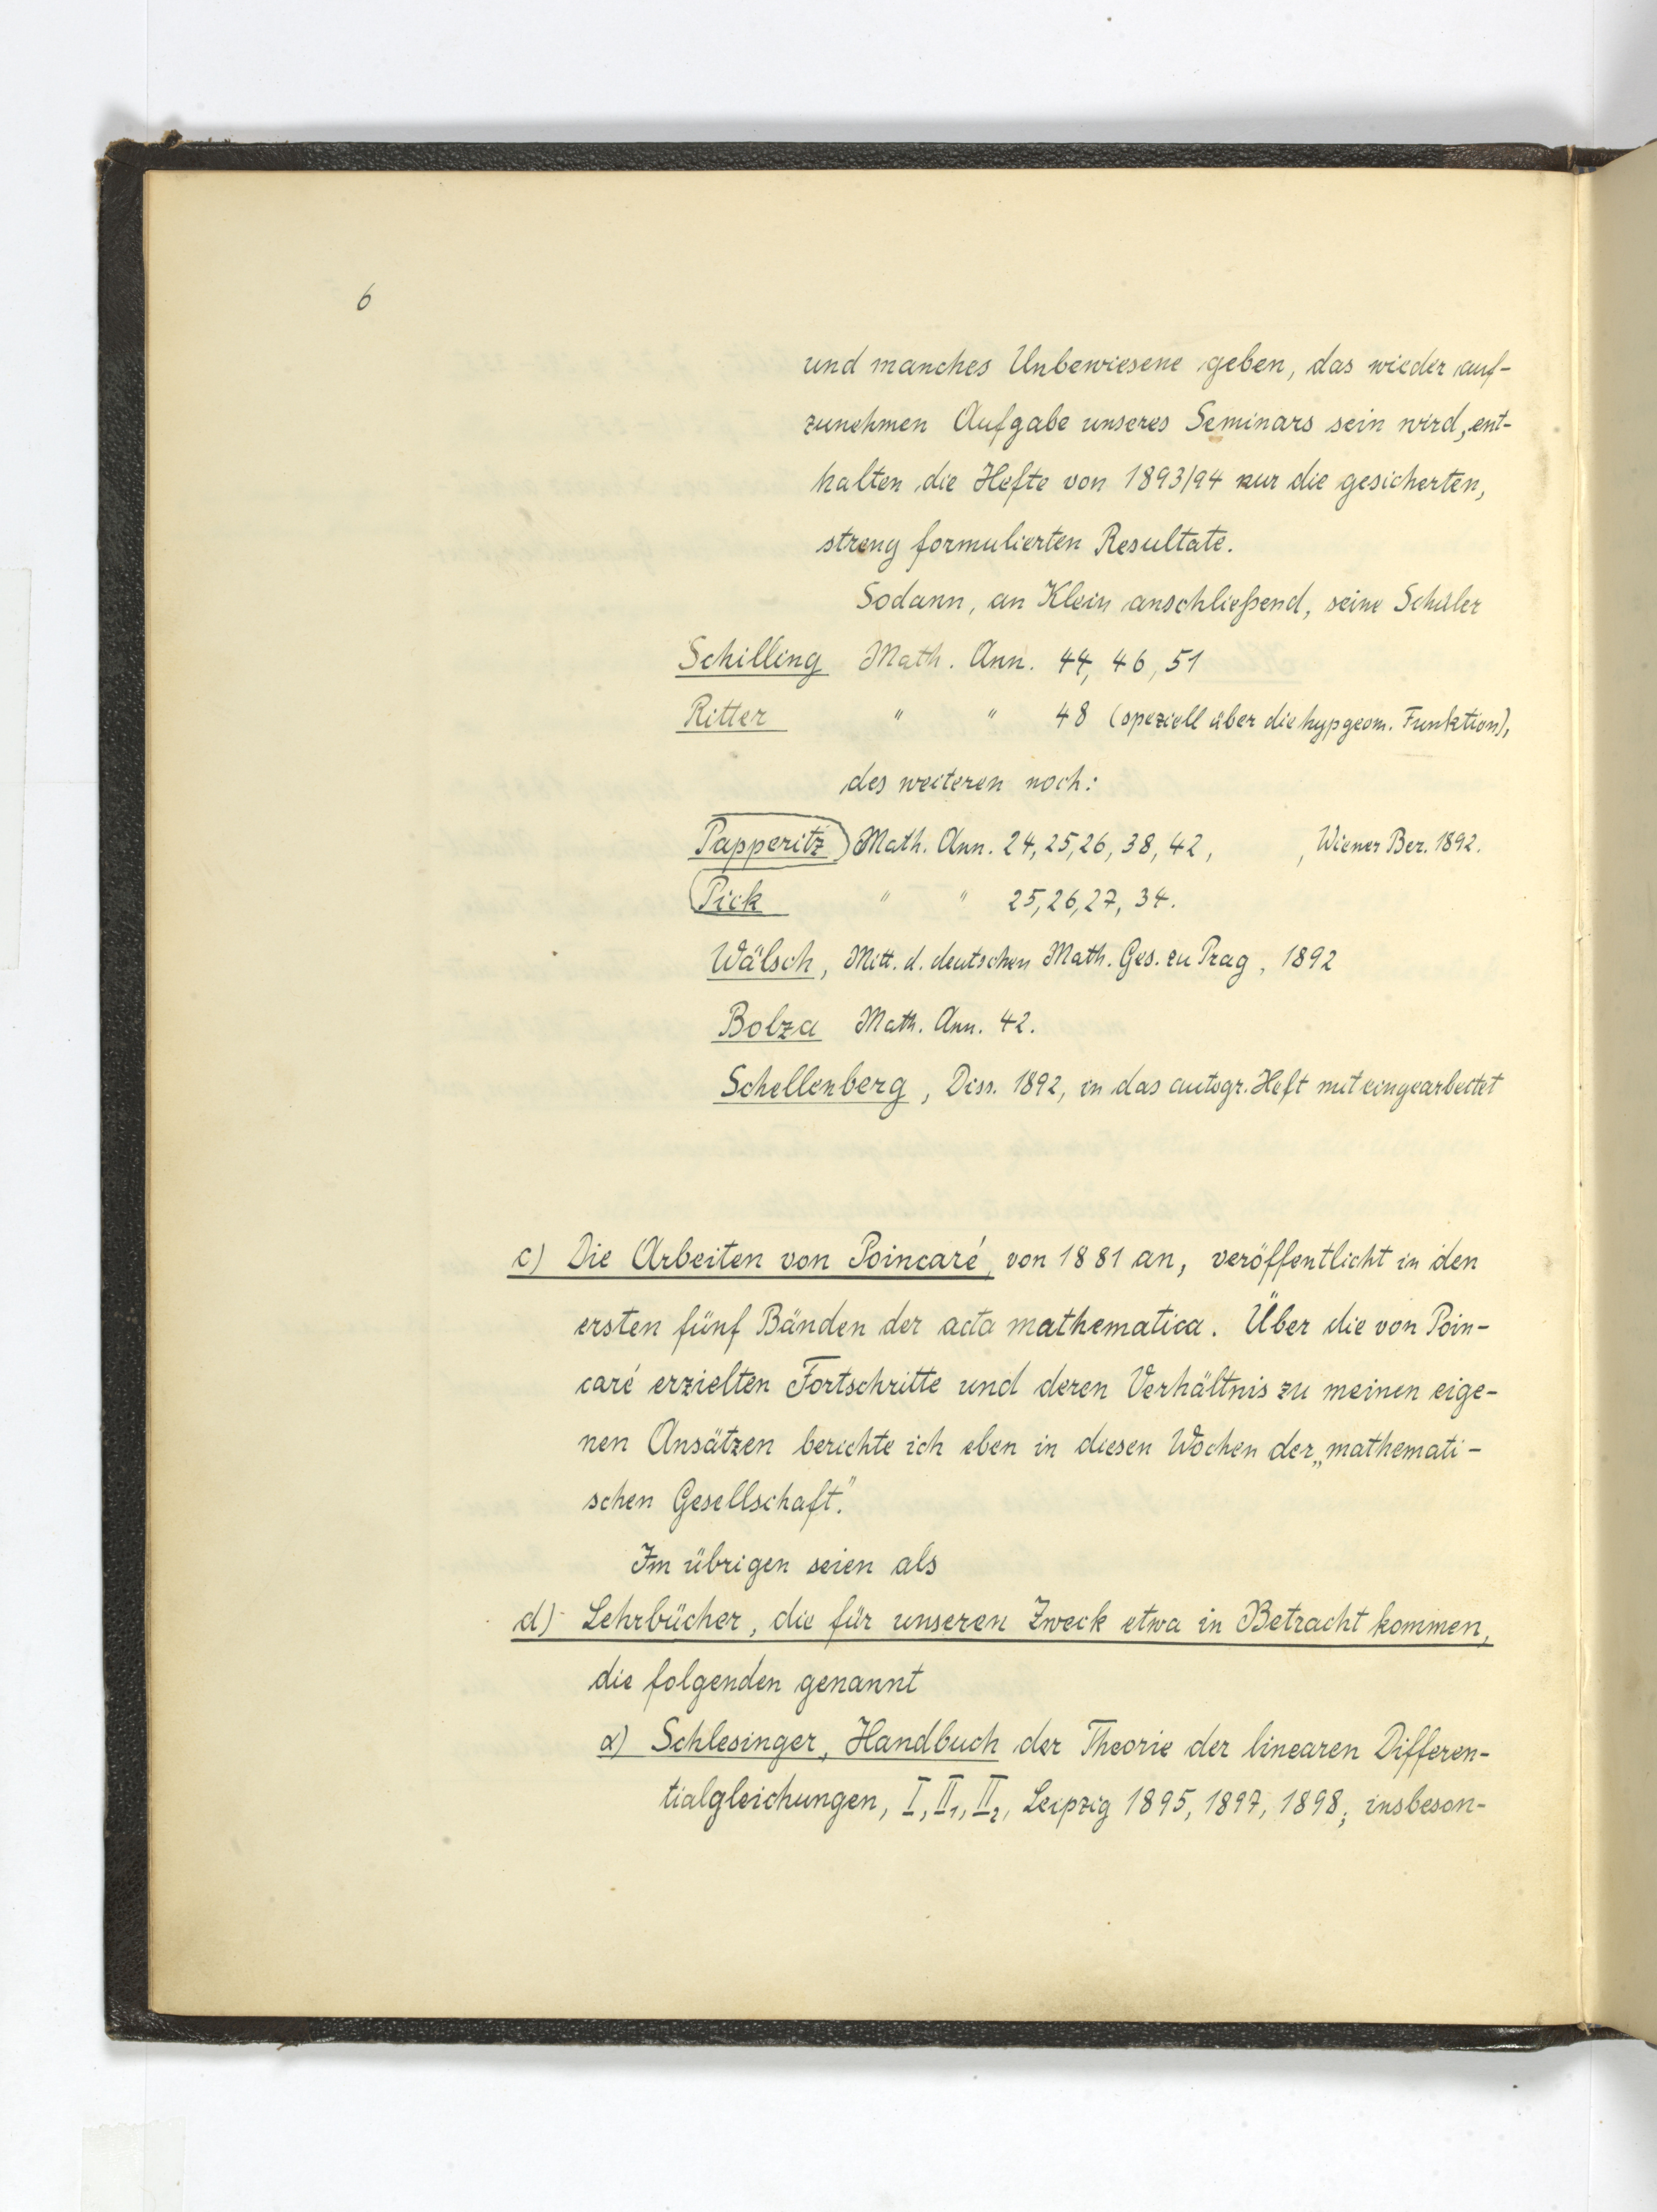 6
und manches Unbewiesene geben, das wieder auf-
zunehmen Aufgabe unseres Seminars sein wird, ent-
halten die Hefte von 1893/94 nur die gesicherten,
streng formulierten Resultate.
Sodann, an Klein anschließend, seine Schüler
Schilling Math. Ann. 44, 46, 51
Ritter " " 48 (speziell über die hypgeom. Funktion),
des weiteren noch:
Papperitz Math. Ann. 24, 25, 26, 38, 42, , Wiener Ber. 1892.
Pick " " 25, 26, 27, 34.
Wälsch, Mitt. d. deutschen Math. Ges. zu Prag, 1892
Bolza Math. Ann. 42.
Schellenberg, Diss. 1892, in das autogr. Heft mit eingearbeitet
c) Die Arbeiten von Poincaré, von 1881 an, veröffentlicht in den
ersten fünf Bänden der acta mathematica. Über die von Poin-
caré erzielten Fortschritte und deren Verhältnis zu meinen eige-
nen Ansätzen berichte ich eben in diesen Wochen der „mathemati-
schen Gesellschaft."
Im übrigen seien als
d) Lehrbücher, die für unseren Zweck etwa in Betracht kommen,
die folgenden genannt
α) Schlesinger, Handbuch der Theorie der linearen Differen-
tialgleichungen, I, II₁, II₂, Leipzig 1895, 1897, 1898; insbeson-